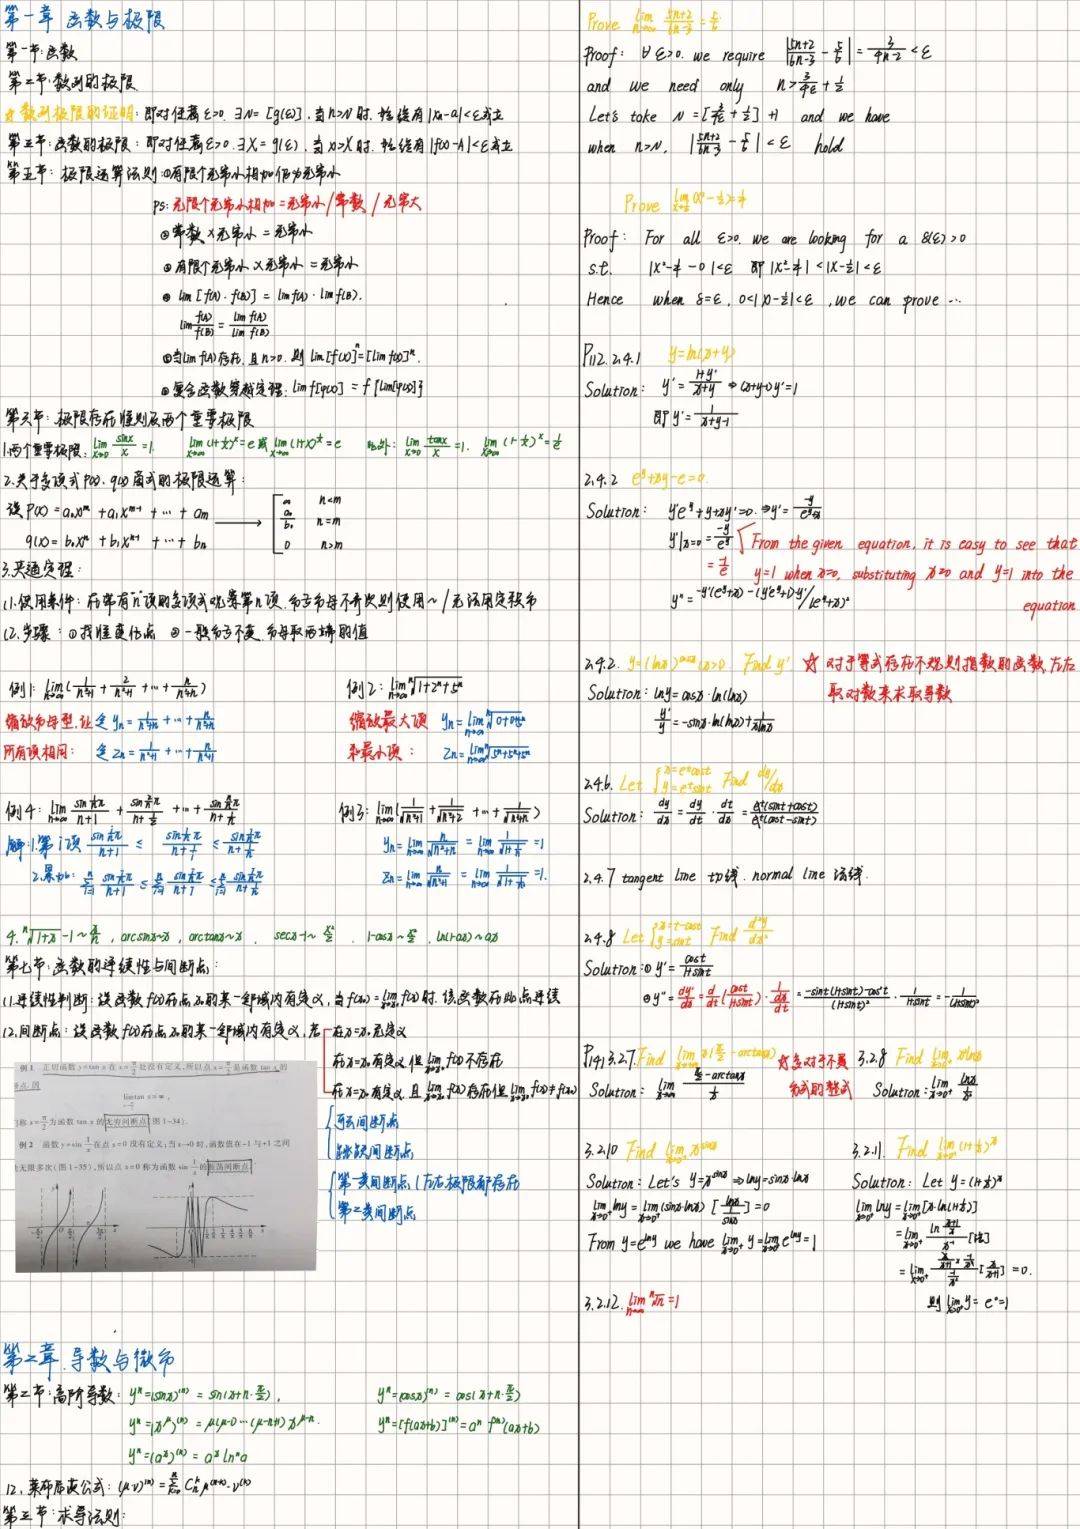 第一章 函数与极限
第一节:函数
第二节:数列的极限
☆数列极限的证明:即对任意ε>0. ∃N=[g(ε)], 当n>N时. 恒有|xn-a|<ε成立
第三节:函数的极限:即对任意ε>0. ∃X=g(ε), 当x>X时. 恒有|f(x)-A|<ε成立
第五节:极限运算法则:①有限个无穷小相加仍为无穷小
PS:无限个无穷小相加=无穷小/常数/无穷大
②常数×无穷小=无穷小
③有限个无穷小×无穷小=无穷小
④ lim[f(A)·f(B)]=limf(A)·limf(B).
lim f(A)/f(B) = lim f(A)/lim f(B)
⑤当limf(x)存在.且n>0.则lim[f(x)]^n=[limf(x)]^n.
⑥复合函数穿越定理:limf[φ(x)]=f{lim[φ(x)]}
第六节:极限存在准则及两个重要极限
1.两个重要极限: lim x→0 sinx/x=1. lim x→∞ (1+1/x)^x=e 或 lim (1+x)^(1/x)=e 此外: lim x→0 tanx/x=1. lim x→∞ (1-1/x)^x=1/e
2.关于多项式P(x). q(x)商式的极限运算:
设P(x)=a₀x^m+a₁x^(m-1)+…+am
q(x)=b₀x^n+b₁x^(n-1)+…+bn
∞ n<m
a₀/b₀ n=m
0 n>m
3.夹逼定理:
(1.使用条件:
(2.步骤: ①找准变化点 ②一般分子不变.分母取两端的值
例1: lim n→∞ (1/(n²+1)+2/(n²+2)+…+n/(n²+n))
缩放分母型.让
所有项相同:
例2: lim n→∞ ⁿ√(1+2ⁿ+5ⁿ)
缩放最大项
和最小项:
例4: lim n→∞ sin(1/n)π/(n+1)+sin(2/n)π/(n+1/2)+…+sin(n/n)π/(n+1/n)
解:1.第i项
2.累加:
例3: lim n→∞ (1/√(n²+1)+1/√(n²+2)+…+1/√(n²+n))
yn=lim n→∞ n/√(n²+n)=lim n→∞ 1/√(1+1/n)=1
4. ⁿ√(1+x)-1~x/n, arcsinx~x, arctanx~x, secx-1~x²/2, 1-cosx~x²/2, ln(1+x)~x
第七节:函数的连续性与间断点:
(1.连续性判断:设函数f(x)在点x₀的某一邻域内有定义,当f(x₀)=lim f(x)时.该函数在此点连续
(2.间断点:设函数f(x)在点x₀的某一邻域内有定义.若
在x=x₀无定义
在x=x₀有定义.但lim f(x)不存在
在x=x₀有定义.且lim f(x)存在但lim f(x)≠f(x₀)
可去间断点
跳跃间断点
第一类间断点(左右极限都存在
第二类间断点
例1 正切函数y=tan x在x=π/2处没有定义,所以点x=π/2是函数tan x的
lim tan x=∞,
称x=π/2为函数tan x的无穷间断点(图1-34).
例2 函数y=sin 1/x在点x=0没有定义;当x→0时,函数值在-1与+1之间
无限多次(图1-35),所以点x=0称为函数sin 1/x的振荡间断点.
第二章.导数与微分
第二节:高阶导数: yⁿ=(sinx)^(n)=sin(x+n·π/2), yⁿ=(cosx)^(n)=cos(x+n·π/2)
yⁿ=(x^μ)^(n)=μ(μ-1)…(μ-n+1)x^(μ-n). yⁿ=[f(ax+b)]^(n)=aⁿf^(n)(ax+b)
yⁿ=(a^x)^(n)=a^x lnⁿa
(2.莱布尼茨公式:(μ·v)^(n)=Σ C μ^(n-k)·v^(k)
第三节:求导法则:
Prove lim n→∞ (5n+2)/(6n-3)=5/6
Proof: ∀ε>0. we require |(5n+2)/(6n-3)-5/6|=3/(4n-2)<ε
and we need only n>3/4ε+1/2
Let's take N=[3/4ε+1/2]+1 and we have
when n>N. |(5n+2)/(6n-3)-5/6|<ε hold
Prove
Proof: For all ε>0. we are looking for a δ(ε)>0
s.t. |x²-1/4-0|<ε 即|x²-1/4|<|x-1/2|<ε
Hence when δ=ε, 0<|x-1/2|<ε, we can prove …
P112.2.4.1 y=ln(x+y)
Solution: y'=(1+y')/(x+y) ⇒(x+y-1)y'=1
即y'=1/(x+y-1)
2.4.2 e^y+xy-e=0.
Solution: y'e^y+y+xy'=0.⇒y'=-y/(e^y+x)
y'|x=0=-y/e^y
=-1/e
From the given equation, it is easy to see that
y=1 when x=0, substituting x=0 and y=1 into the
equation
y''=-y'(e^y+x)-(y'e^y+1)·y/(e^y+x)²
2.4.2. y=(lnx)^cosx (x>0. Find y' ☆对于等式存在不规则指数的函数.左右
取对数来求取导数
Solution: lny=cosx·ln(lnx)
y'/y=-sinx·ln(lnx)+1/xlnx
2.4.6. Let x=e^t cost y=e^t sint Find dy/dx
Solution: dy/dx=dy/dt·dt/dx=e^t(sint+cost)/e^t(cost-sint)
2.4.7 tangent line 切线. normal line 法线.
2.4.8 Let x=t-cost y=sint Find d²y/dx²
Solution:① y'=cost/(1+sint)
② y''=dy'/dx=d/dt(cost/(1+sint))·1/(dx/dt)=(-sint(1+sint)-cos²t)/(1+sint)²·1/(1+sint)=-1/(1+sint)²
P141 3.2.7.Find lim x(π/2-arctanx)
Solution: lim (π/2-arctanx)/(1/x)
分式的整式
3.2.8 Find lim xlnx
Solution: lim lnx/(1/x)
3.2.10 Find lim x→0⁺ x^sinx
Solution: Let's y=x^sinx ⇒lny=sinx·lnx
lim x→0⁺ lny=lim x→0⁺ (sinx·lnx) =0
From y=e^lny we have lim x→0⁺ y=lim x→0⁺ e^lny=1
3.2.11. Find lim x→0⁺ (1+1/x)^x
Solution: Let y=(1+1/x)^x
lim x→0⁺ lny=lim x→0⁺ [x·ln(1+1/x)]
=0.
则 lim x→0⁺ y=e⁰=1
3.2.12. lim n→∞ ⁿ√n=1